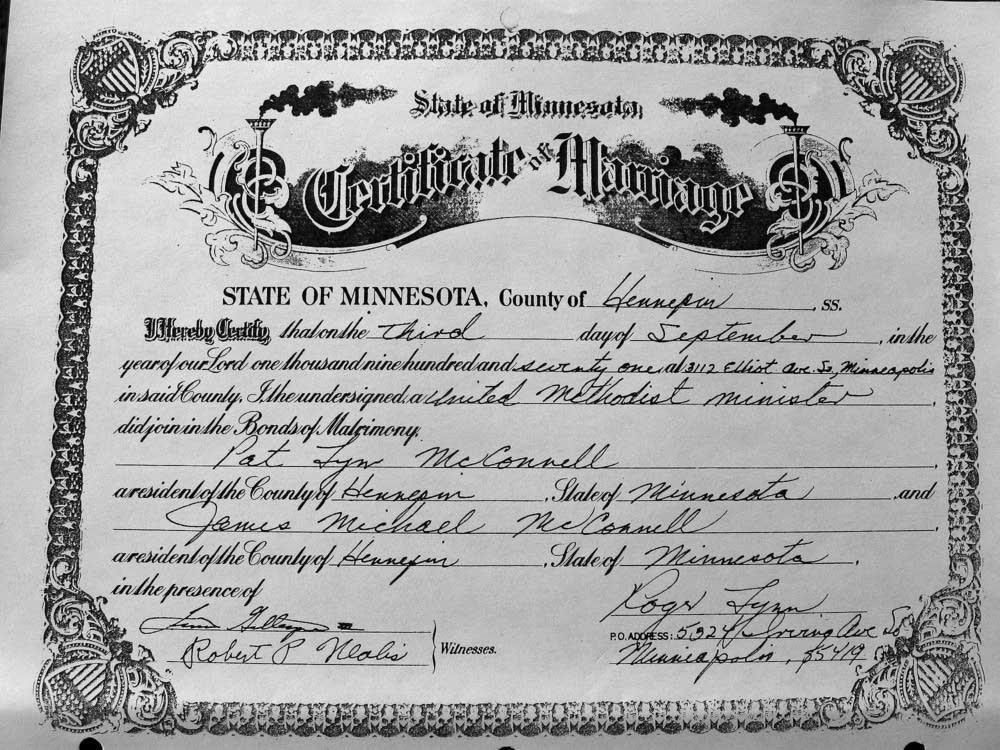 State of Minnesota
Certificate of Marriage
STATE OF MINNESOTA, County of Hennepin, SS.
I Hereby Certify, that on the third day of September, in the
year of our Lord one thousand nine hundred and seventy one, at 3112 Elliot Ave. So, Minneapolis
in said County, I, the undersigned, a United Methodist minister,
did join in the Bonds of Matrimony,
Pat Lyn McConnell,
a resident of the County of Hennepin, State of Minnesota, and
James Michael McConnell,
a resident of the County of Hennepin, State of Minnesota,
in the presence of
Roger Lynn
III
P.O. ADDRESS: 5924 Irving Ave So
Robert P
Witnesses.
Minneapolis, 55419